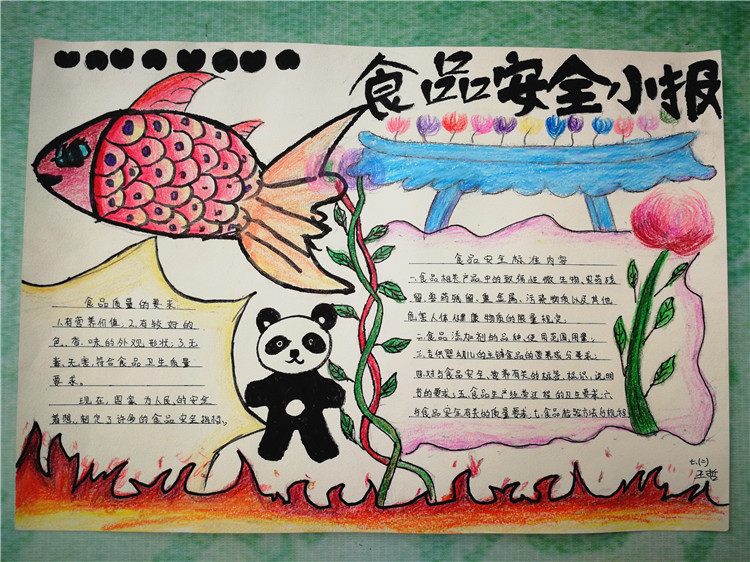 食品安全小报
食品质量的要求
1.有营养价值；2.有较好的
色、香、味的外观形状；3.无
毒、无害，符合食品卫生质量
要求。
现在，国家为人民的安全
着想，制定了许多的食品安全指标。
食品安全标准内容
一、食品相关产品中的致病性微生物、农药残
留、兽药残留、重金属、污染物质以及其他
危害人体健康物质的限量规定；
二、食品添加剂的品种、使用范围、用量；
三、专供婴幼儿的主辅食品的营养成分要求；
四、对与食品安全、营养有关的标签、标识、说明
书的要求；五、食品生产经营过程的卫生要求；六、
与食品安全有关的质量要求；七、食品检验方法与规程
七.(二)
王哲